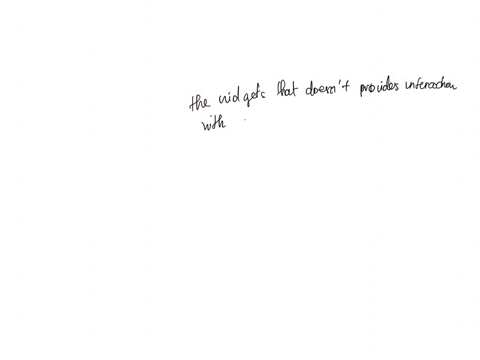 the widgets that doesn't provides interaction
with